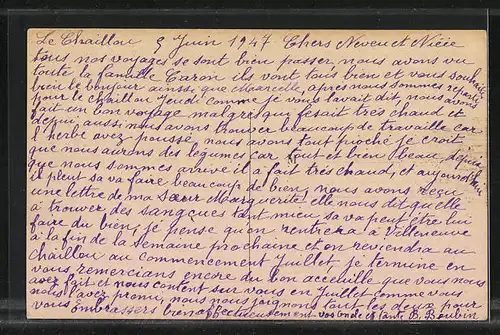 Le Chaillou 9 Juin 1947 Chers Neveu et Nièce
tous nos voyages se sont bien passer, nous avons vu
toute la famille Caron ils vont tous bien et vous souhaite
bien le bonjour ainsi, que Marcelle, apres nous sommes reparti
pour le Chaillou Jeudi comme je vous lavait dit, nous avons
fait un bon voyage malgres qui fesait très chaud et
depui aussi, nous avons trouver beaucoup de travaille car
l'herbe avez poussé, nous avons tout pioché je croit
que nous aurons des légumes car tout et bien beau, depuis
que nous sommes arrive il à fait très chaud, et aujourd'hui
il pleut sa va faire beaucoup de bien, nous avons reçu
une lettre de ma Sœur Marguerite elle nous dit quelle
à trouver, des sangçues tant mieu sa va peut être lui
faire du bien, je pense qu'on rentrera à Villeneuve
à la fin de la semaine prochaine et on reviendra au
Chaillou au commencement Juillet, je termine en
vous, remercians encore du bon acceuille que vous nous
avez fait et nous content sur vous en Juillet comme vous
nous l'avez promi, nous nous joignons tout les deux pour
vous embrassers bien affectueusement vos oncle et tante B. Boubin